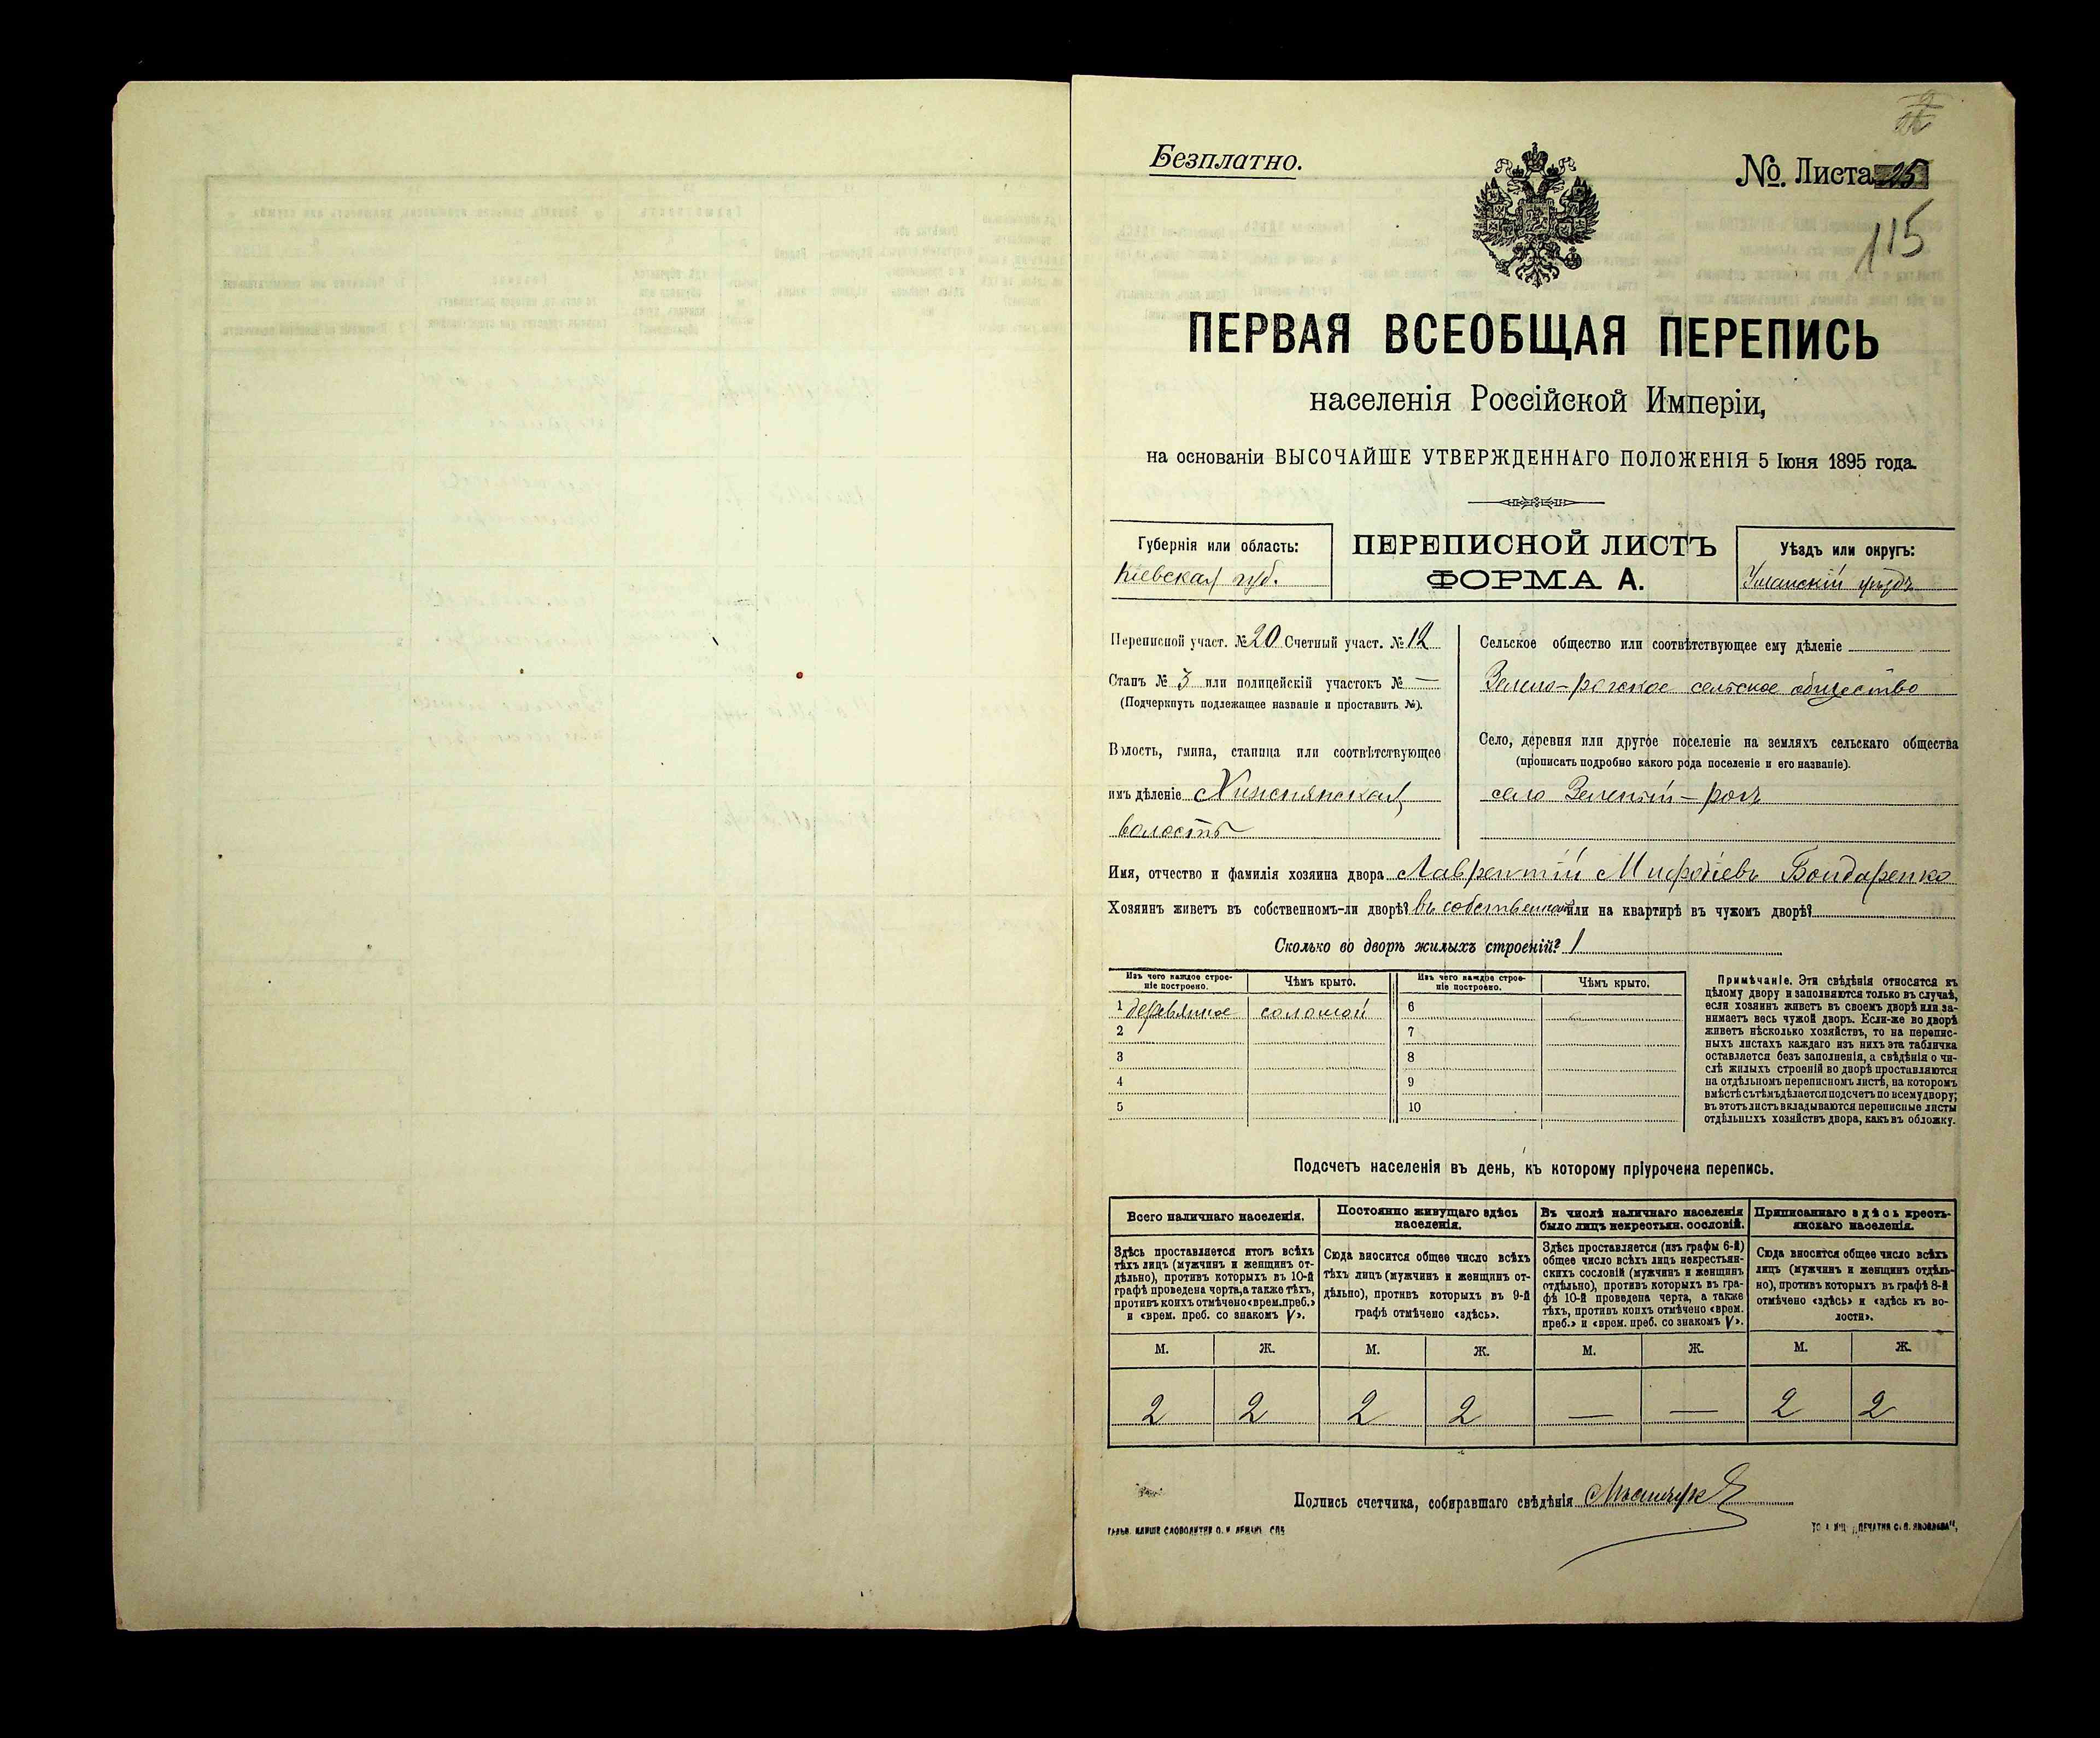 Безплатно.
№ Листа 25
115
ПЕРВАЯ ВСЕОБЩАЯ ПЕРЕПИСЬ
населенія Россійской Имперіи,
на основаніи ВЫСОЧАЙШЕ УТВЕРЖДЕННАГО ПОЛОЖЕНІЯ 5 Іюня 1895 года.
Губернія или область:
Кіевская губ.
ПЕРЕПИСНОЙ ЛИСТЪ
ФОРМА А.
Уѣздъ или округъ:
Уманскій уѣздъ
Переписной участ. № 20 Счетный участ. № 12
Станъ № 3 или полицейскій участокъ № —
(Подчеркнуть подлежащее названіе и проставить №).
Волость, гмина, станица или соотвѣтствующее
имъ дѣленіе
волость
Сельское общество или соотвѣтствующее ему дѣленіе
Зелено-рогское сельское общество
Село, деревня или другое поселеніе на земляхъ сельскаго общества
(прописать подробно какого рода поселеніе и его названіе).
село Зеленый-рогъ
Имя, отчество и фамилія хозяина двора Лаврентій Мифодіевъ Бондаренко
Хозяинъ живетъ въ собственномъ-ли дворѣ? въ собственномъ или на квартирѣ въ чужомъ дворѣ?
Сколько во дворѣ жилыхъ строеній? 1
Изъ чего каждое строе-
ніе построено.
Чѣмъ крыто.
Изъ чего каждое строе-
ніе построено.
Чѣмъ крыто.
1 деревянное соломой 6
2 7
3 8
4 9
5 10
Примѣчаніе. Эти свѣдѣнія относятся къ
цѣлому двору и заполняются только въ случаѣ,
если хозяинъ живетъ въ своемъ дворѣ или за-
нимаетъ весь чужой дворъ. Если-же во дворѣ
живетъ нѣсколько хозяйствъ, то на перепис-
ныхъ листахъ каждаго изъ нихъ эта табличка
оставляется безъ заполненія, а свѣдѣнія о чи-
слѣ жилыхъ строеній во дворѣ проставляются
на отдѣльномъ переписномъ листѣ, на которомъ
вмѣстѣ съ тѣмъ дѣлается подсчетъ по всему двору;
въ этотъ листъ вкладываются переписные листы
отдѣльныхъ хозяйствъ двора, какъ въ обложку.
Подсчетъ населенія въ день, къ которому пріурочена перепись.
Всего наличнаго населенія.
Постоянно живущаго здѣсь
населенія.
Въ числѣ наличнаго населенія
было лицъ некрестьян. сословій.
Приписаннаго здѣсь кресть-
янскаго населенія.
Здѣсь проставляется итогъ всѣхъ
тѣхъ лицъ (мужчинъ и женщинъ от-
дѣльно), противъ которыхъ въ 10-й
графѣ проведена черта, а также тѣхъ,
противъ коихъ отмѣчено «врем. преб.»
и «врем. преб. со знакомъ V».
Сюда вносится общее число всѣхъ
тѣхъ лицъ (мужчинъ и женщинъ от-
дѣльно), противъ которыхъ въ 9-й
графѣ отмѣчено «здѣсь».
Здѣсь проставляется (изъ графы 6-й)
общее число всѣхъ лицъ некрестьян-
скихъ сословій (мужчинъ и женщинъ
отдѣльно), противъ которыхъ въ гра-
фѣ 10-й проведена черта, а также
тѣхъ, противъ коихъ отмѣчено «врем.
преб.» и «врем. преб. со знакомъ V».
Сюда вносится общее число всѣхъ
лицъ (мужчинъ и женщинъ отдѣль-
но), противъ которыхъ въ графѣ 8-й
отмѣчено «здѣсь» и «здѣсь къ во-
лости».
М. Ж. М. Ж. М. Ж. М. Ж.
2 2 2 2 — — 2 2
Подпись счетчика, собиравшаго свѣдѣнія